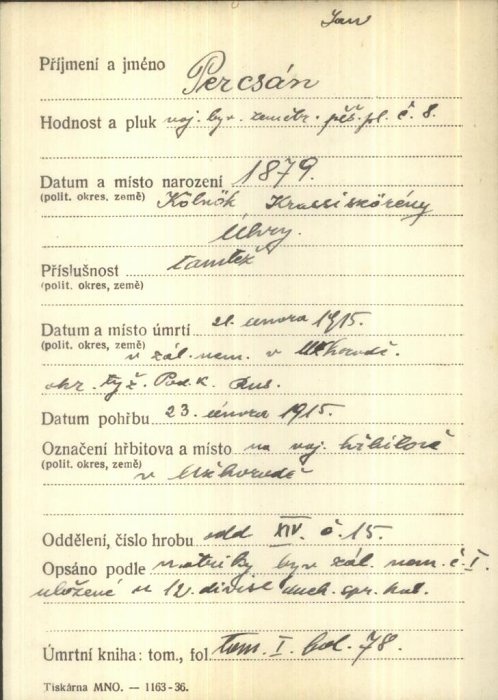 Jan
Příjmení a jméno Percsán
Hodnost a pluk voj. byv. zeměbr. pěš. pl. č. 8.
Datum a místo narození 1879.
(polit. okres, země) Kölnök Krassiskörény
Úhry.
Příslušnost tamtéž
(polit. okres, země)
Datum a místo úmrtí 21. února 1915.
(polit. okres, země) v zál. nem. v Užhorodě.
okr. tyž. Pod. k. Rus.
Datum pohřbu 23. února 1915.
Označení hřbitova a místo na voj. hřbitově
(polit. okres, země) v Užhorodě
Oddělení, číslo hrobu odd XIV. č 15.
Opsáno podle matriky byv zál. nem. č. I.
uložené u 12. divise duch. spr. kat.
Úmrtní kniha: tom., fol. tom. I. fol. 78.
Tiskárna MNO. — 1163-36.